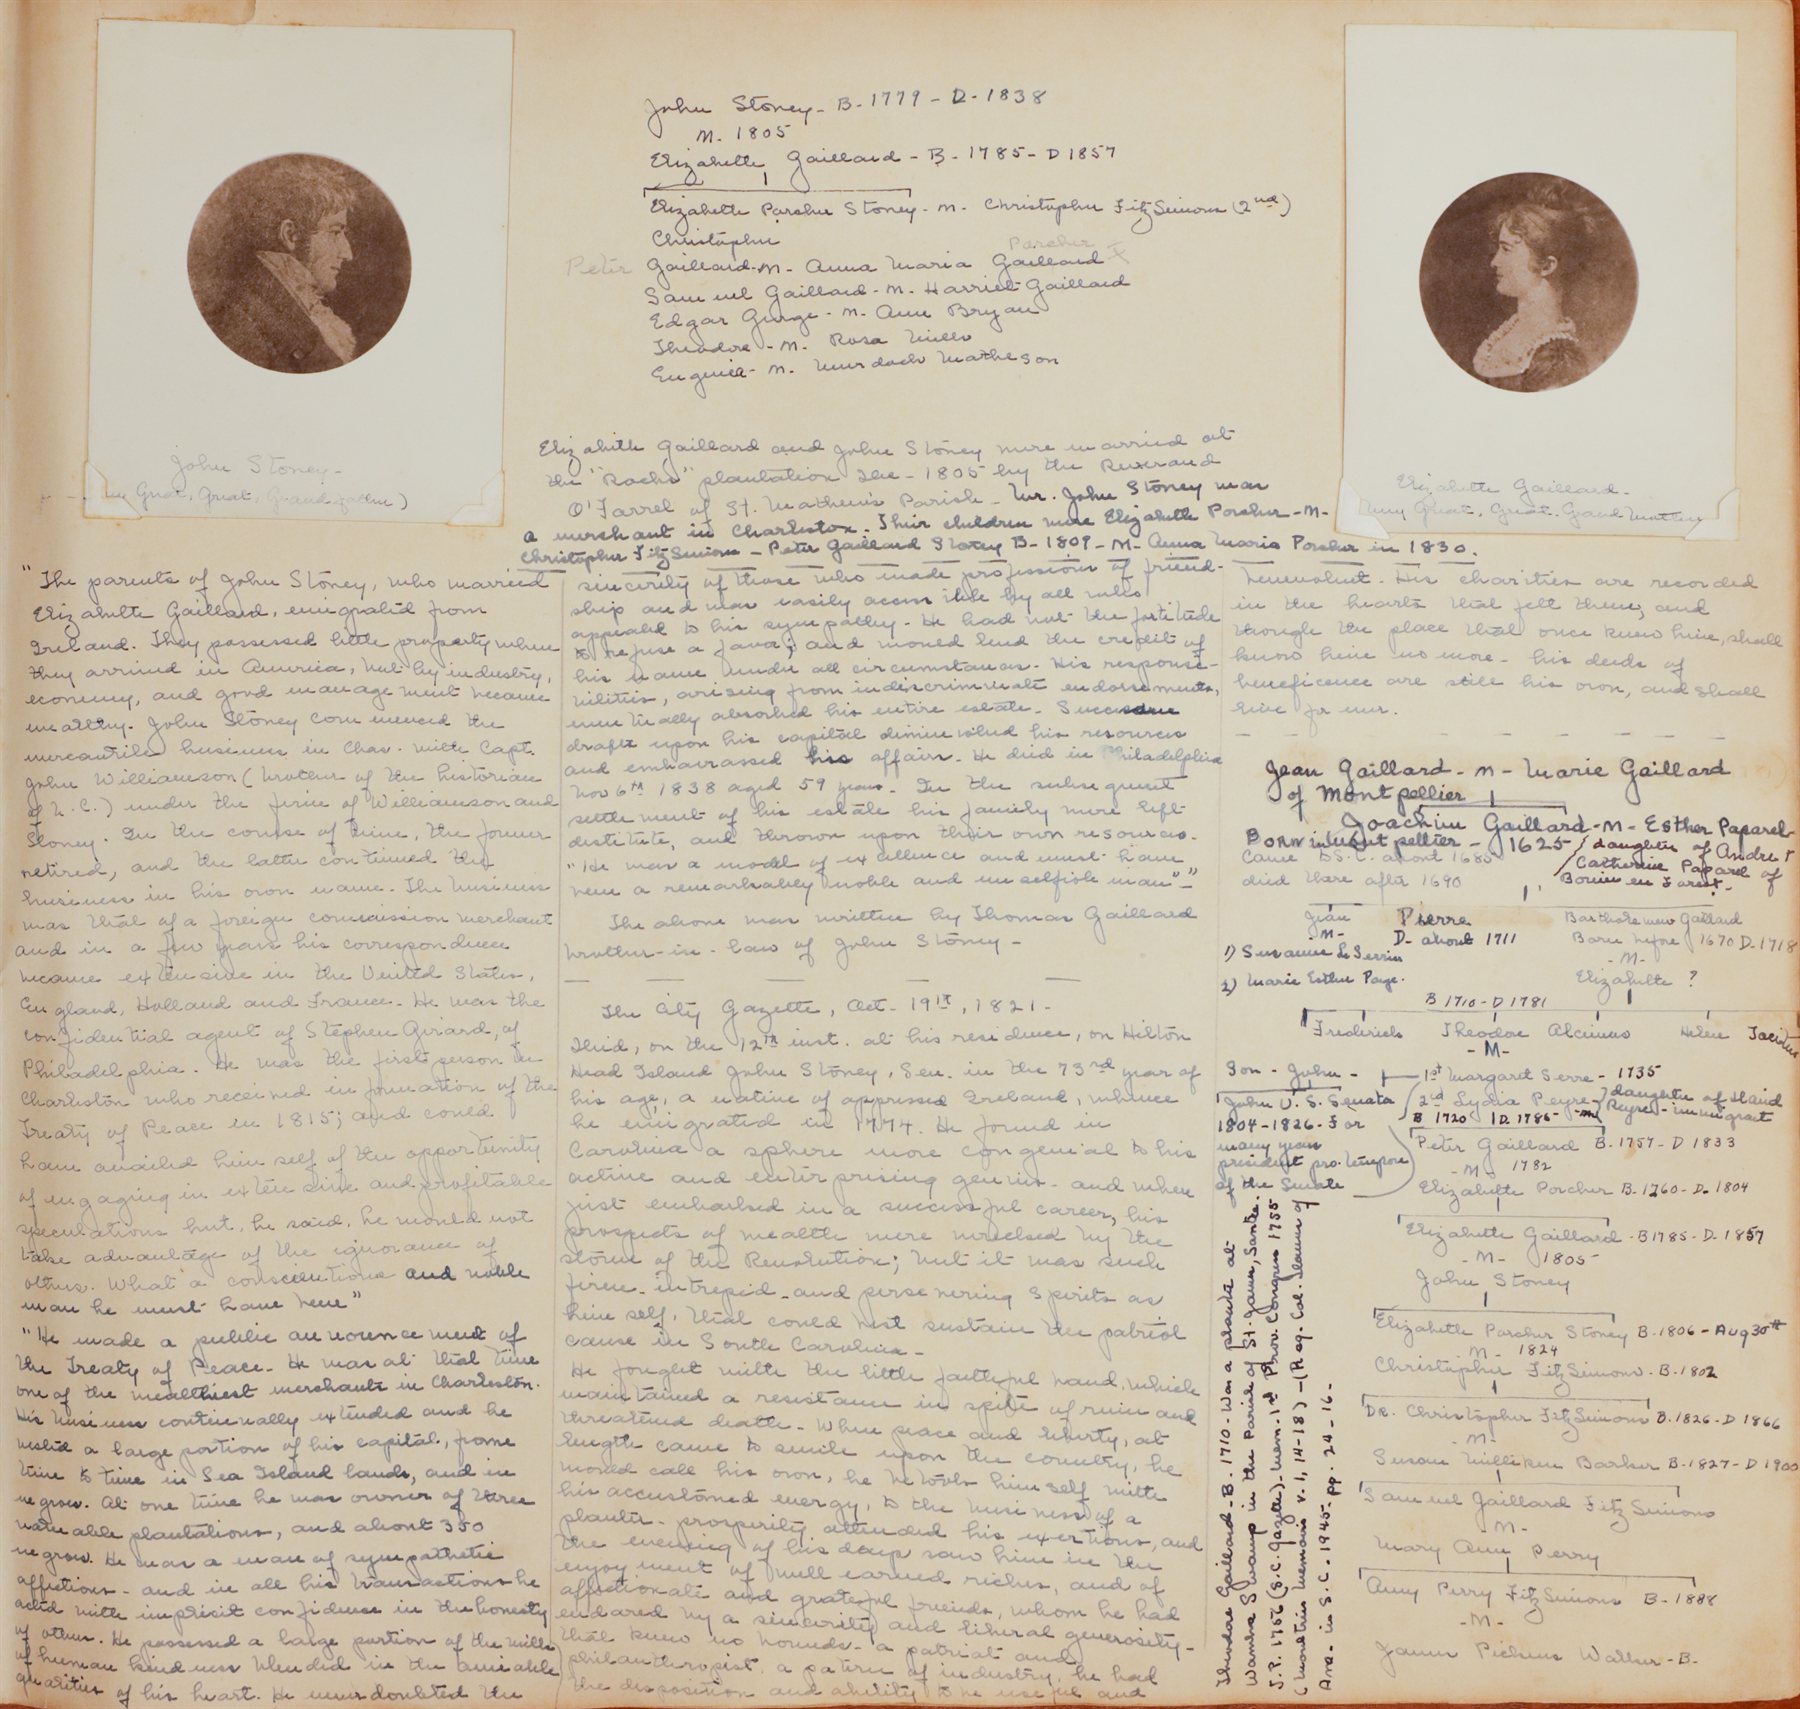 John Stoney - B - 1779 - D - 1838
M - 1805
Elizabeth Gaillard - B - 1785 - D 1857
Elizabeth Porcher Stoney - m - Christopher FitzSimons (2nd)
Christopher
Porcher
Peter Gaillard - m - Anna Maria Gaillard
Samuel Gaillard - m - Harriet Gaillard
Edgar George - m - Ann Bryan
Theodore - m - Rosa
Eugenia - m - Murdoch Matheson
John Stoney -
my Great, Great, Grand father)
Elizabeth Gaillard -
my Great, Great - Grand Mother
Elizabeth Gaillard and John Stoney were married at
the "Rocks" plantation Dec - 1805 by the Reverend
O'Farrel of St. Mathews Parish - Mr. John Stoney was
a merchant in Charleston. Their children were Elizabeth Porcher - M -
Christopher FitzSimons - Peter Gaillard Stoney B - 1809 - M - Anna Maria Porcher in 1830.
"The parents of John Stoney, who married
Elizabeth Gaillard, emigrated from
Ireland. They possessed little property when
they arrived in America, but by industry,
economy, and good management became
wealthy. John Stoney commenced the
mercantile business in Chas. with Capt.
John Williamson (brother of the historian
of N. C.) under the firm of Williamson and
Stoney. In the course of time, the former
retired, and the latter continued the
business in his own name. The business
was that of a foreign commission merchant
and in a few years his correspondence
became extensive in the United States,
England, Holland and France - He was the
confidential agent of Stephen Girard, of
Philadelphia. He was the first person in
Charleston who received information of the
Treaty of Peace in 1815; and could
have availed himself of the opportunity
of engaging in extensive and profitable
speculations but, he said, he would not
take advantage of the ignorance of
others. What a conscientious and noble
man he must have been"
"He made a public announcement of
the Treaty of Peace - He was at that time
one of the wealthiest merchants in Charleston.
His business continually extended and he
vested a large portion of his capital, from
time to time in Sea Island lands, and in
negroes. At one time he was owner of three
valuable plantations, and about 350
negroes. He was a man of sympathetic
affections - and in all his transactions he
acted with implicit confidence in the honesty
of others. He possessed a large portion of the milk
of human kindness blended in the amiable
qualities of his heart. He never doubted the
sincerity of those who made professions of friend-
ship and was easily accessible by all who
appealed to his sympathy - He had not the fortitude
to refuse a favor; and would lend the credit of
his name under all circumstances - His responsi-
bilities, arising from indiscriminate endorsements,
eventually absorbed his entire estate - Successive
drafts upon his capital diminished his resources
and embarrassed his affairs. He died in Philadelphia
Nov 6th 1838 aged 59 years. In the subsequent
settlement of his estate his family were left
destitute, and thrown upon their own resources.
"He was a model of excellence and must have
been a remarkably noble and unselfish man" -
The above was written by Thomas Gaillard
brother-in-law of John Stoney -
The City Gazette, Oct - 19th, 1821 -
Died, on the 12th inst. at his residence, on Hilton
Head Island John Stoney, Sen. in the 73rd year of
his age, a native of oppressed Ireland, whence
he emigrated in 1774. He found in
Carolina a sphere more congenial to his
active and enterprising genius - and when
just embarked in a successful career, his
prospects of wealth were wrecked by the
storm of the Revolution; but it was such
firm - intrepid - and persevering spirits as
himself, that could best sustain the patriot
cause in South Carolina -
He fought with the little faithful band, which
maintained a resistance in spite of ruin and
threatened death - When peace and liberty, at
length came to smile upon the country, he
would call his own, he betook himself with
his accustomed energy, to the business of a
planter - prosperity attended his exertions, and
the evening of his days saw him in the
enjoyment of well earned riches, and of
affectionate and grateful friends, whom he had
endeared by a sincerity and liberal generosity -
that knew no bounds - a patriot and
philanthropist, a patern of industry, he had
the disposition and ability to be useful and
benevolent. His charities are recorded
in the hearts that felt them, and
though the place that once knew him, shall
know him no more - his deeds of
beneficence are still his own, and shall
live for ever.
Jean Gaillard - m - Marie Gaillard
of Montpellier
Joachim Gaillard - m - Esther Paparel
Born in Montpellier - 1625
daughter of Andre +
Catherine Paparel of
Bouin en Forest -
came to S. C. about 1685
died there after 1690
Jean
M -
1) Susanne Le Serrin
2) Marie Esther Page.
Pierre
D - about 1711
Bartholomew Gaillard
Born before 1670 D - 1718
- M -
Elizabeth ?
B 1710 - D 1781
Frederick Theodore Alcimus Helen Tacitus
- M -
Son - John - 1st Margaret Serre - 1735
2nd Lydia Peyre - daughter of David
Peyre - immigrant
B 1720 D. 1786 - m
John U. S. Senator
1804 - 1826 - For
many years
president pro. tempore
of the Senate
Peter Gaillard B - 1757 - D 1833
- M - 1782
Elizabeth Porcher B - 1760 - D - 1804
Elizabeth Gaillard - B 1785 - D - 1857
- M - 1805
John Stoney
Elizabeth Porcher Stoney B - 1806 - Aug 30th
- M - 1824
Christopher FitzSimons - B - 1802
Dr. Christopher FitzSimons B - 1826 - D 1866
- M -
Susan Milliken Barker B - 1827 - D 1900
Samuel Gaillard FitzSimons
- M -
Mary Amy Perry
Amy Perry FitzSimons B - 1888
- M -
James Pickens Walker - B -
Theodore Gaillard - B - 1710 - Was a planter at
Wambaw Swamp in the Parish of St. James, Santee.
J. P. 1756 (S. C. Gazette) - Mem - 1st Prov. Congress 1755
(Moultries Memoirs v. 1, 14 - 18) - (Reg. Col. Dames of
Am. - in S. C. - 1945 - pp. 24 - 16 -